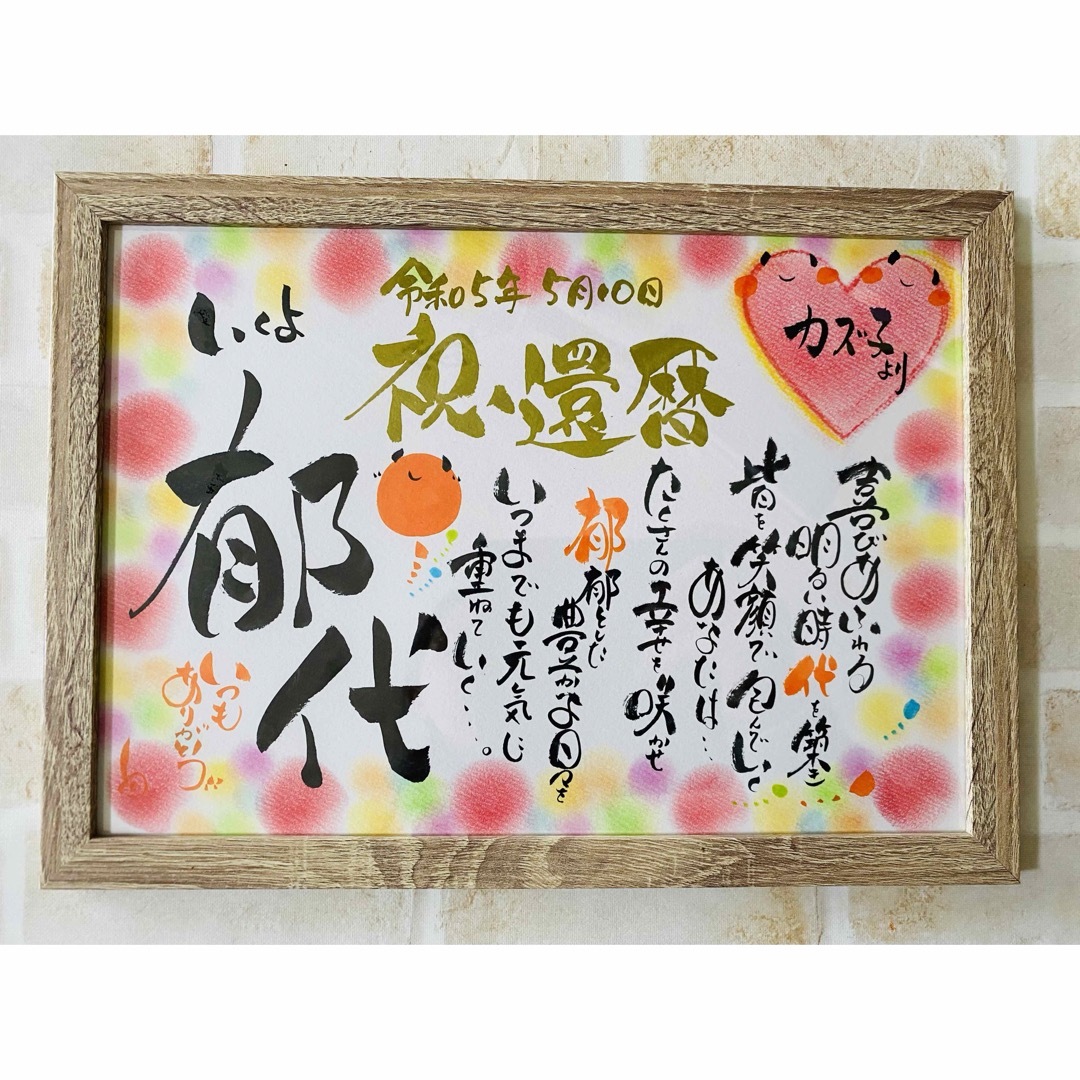 令和5年5月10日
祝・還暦
カズ子より
いくよ
郁代
喜びあふれる
明るい時代を築き
皆を笑顔で包んでいく
あなたは…
たくさんの幸せを咲かせ
郁郁とした
豊かな日々を
いつまでも元気に
重ねていく…。
いつも
ありがとう